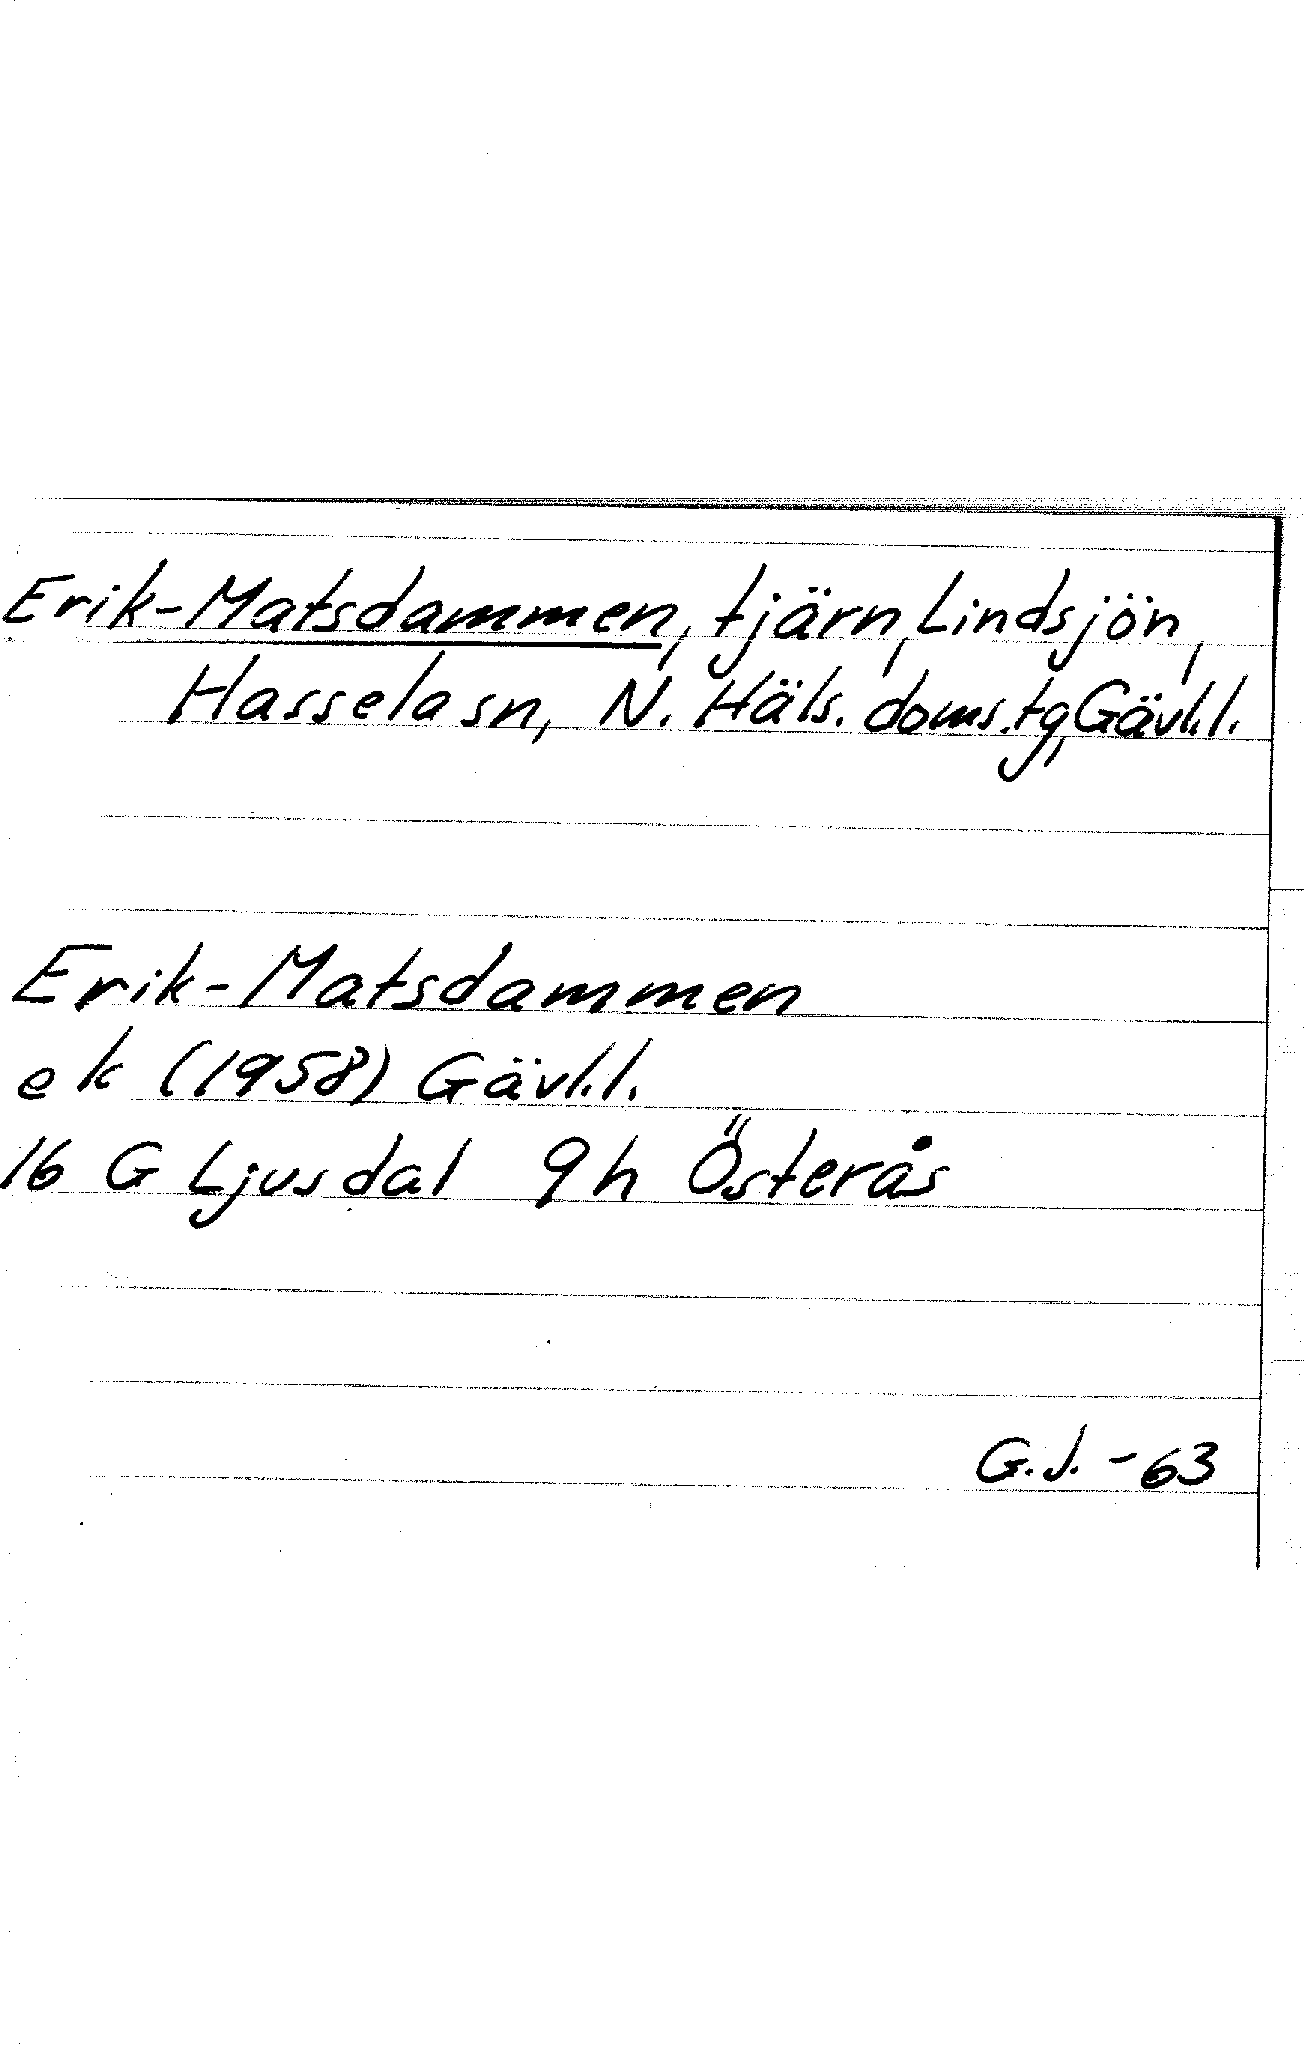 Erik-Matsdammen, tjärn, Lindsjön,
Hassela sn, N. Häls. doms.tg, Gävl.l.
Erik-Matsdammen
ek (1958) Gävl.l.
16 G Ljusdal 9h Österås
G.J. -63